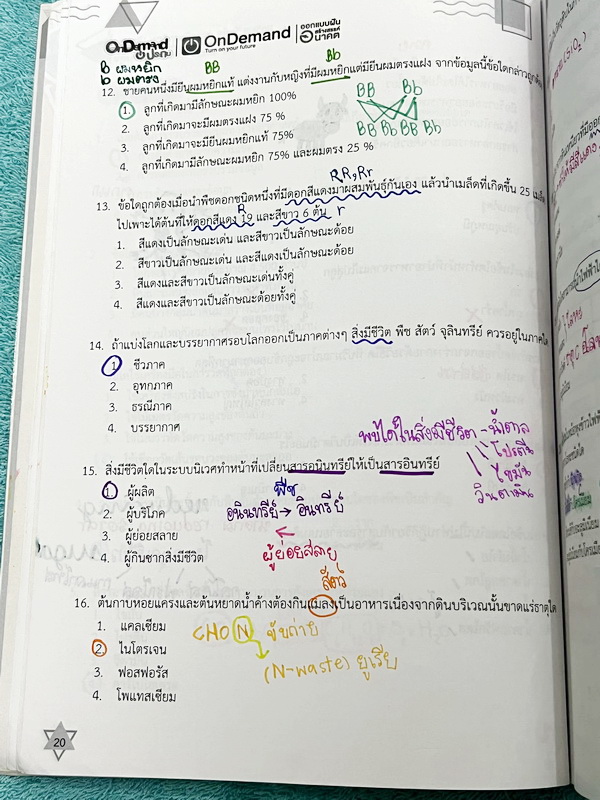 OnDemand
ประถม
OnDemand
Turn on your future
ออกแบบฝัน
สร้างสรรค์
อนาคต
B ผมหยิก BB Bb
b ผมตรง
12. ชายคนหนึ่งมียีนผมหยิกแท้ แต่งงานกับหญิงที่มีผมหยิกแต่มียีนผมตรงแฝง จากข้อมูลนี้ข้อใดกล่าวถูกต้อง
1. ลูกที่เกิดมามีลักษณะผมหยิก 100%
2. ลูกที่เกิดมาจะมีผมตรงแฝง 75 %
3. ลูกที่เกิดมาจะมียีนผมหยิกแท้ 75%
4. ลูกที่เกิดมามีลักษณะผมหยิก 75% และผมตรง 25 %
BB Bb
BB Bb BB Bb
RR, Rr
13. ข้อใดถูกต้องเมื่อนำพืชดอกชนิดหนึ่งที่มีดอกสีแดงมาผสมพันธุ์กันเอง แล้วนำเมล็ดที่เกิดขึ้น 25 เมล็ด
ไปเพาะได้ต้นที่ให้ดอกสีแดง 19 และสีขาว 6 ต้น
R r
1. สีแดงเป็นลักษณะเด่น และสีขาวเป็นลักษณะด้อย
2. สีขาวเป็นลักษณะเด่น และสีแดงเป็นลักษณะด้อย
3. สีแดงและสีขาวเป็นลักษณะเด่นทั้งคู่
4. สีแดงและสีขาวเป็นลักษณะด้อยทั้งคู่
14. ถ้าแบ่งโลกและบรรยากาศรอบโลกออกเป็นภาคต่างๆ สิ่งมีชีวิต พืช สัตว์ จุลินทรีย์ ควรอยู่ในภาคใด
1. ชีวภาค
2. อุทกภาค
3. ธรณีภาค
4. บรรยากาศ
พบได้ในสิ่งมีชีวิต - น้ำตาล
โปรตีน
ไขมัน
วิตามิน
15. สิ่งมีชีวิตใดในระบบนิเวศทำหน้าที่เปลี่ยนสารอนินทรีย์ให้เป็นสารอินทรีย์
1. ผู้ผลิต
2. ผู้บริโภค
3. ผู้ย่อยสลาย
4. ผู้กินซากสิ่งมีชีวิต
พืช
อนินทรีย์ → อินทรีย์
ผู้ย่อยสลาย
สัตว์
16. ต้นกาบหอยแครงและต้นหยาดน้ำค้างต้องกินแมลงเป็นอาหารเนื่องจากดินบริเวณนั้นขาดแร่ธาตุใด
1. แคลเซียม
2. ไนโตรเจน
3. ฟอสฟอรัส
4. โพแทสเซียม
CHON ขับถ่าย
(N-waste) ยูเรีย
20